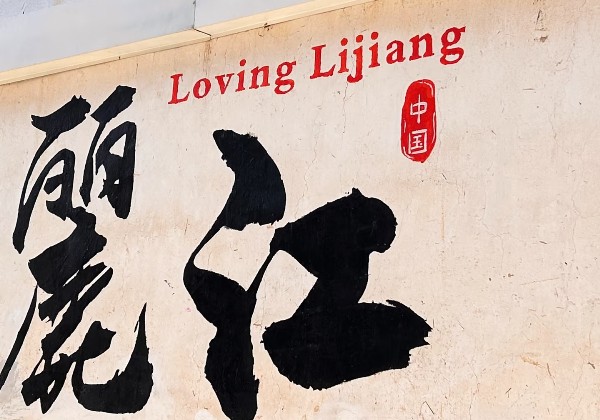 Loving Lijiang
中国
麗江